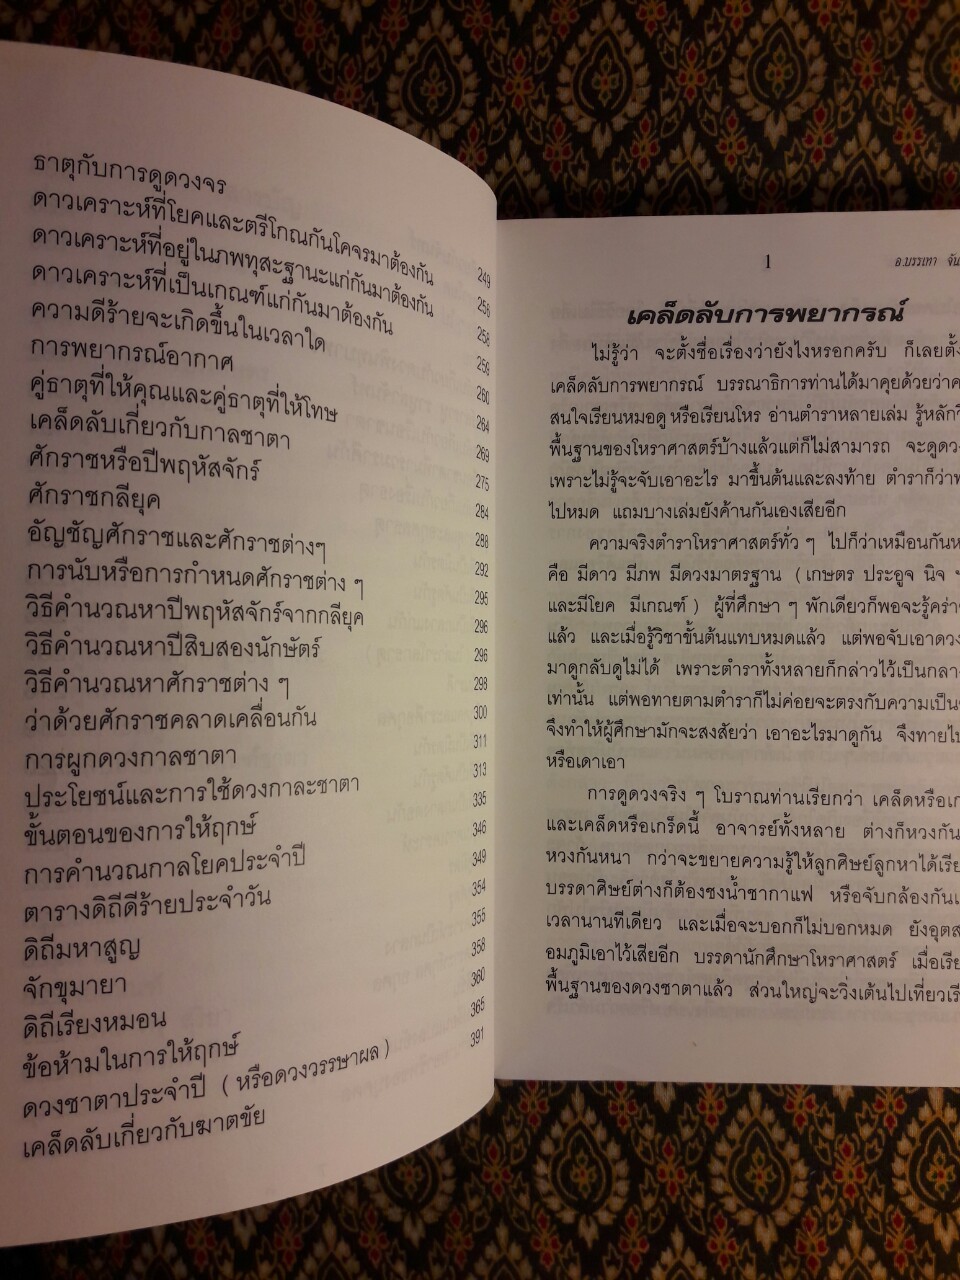 ธาตุกับการดูดวงจร 249
ดาวเคราะห์ที่โยคและตรีโกณกันโคจรมาต้องกัน 256
ดาวเคราะห์ที่อยู่ในภพทุสะฐานะแก่กันมาต้องกัน 258
ดาวเคราะห์ที่เป็นเกณฑ์แก่กันมาต้องกัน 259
ความดีร้ายจะเกิดขึ้นในเวลาใด 260
การพยากรณ์อากาศ 264
คู่ธาตุที่ให้คุณและคู่ธาตุที่ให้โทษ 269
เคล็ดลับเกี่ยวกับกาลชาตา 275
ศักราชหรือปีพฤหัสจักร์ 284
ศักราชกลียุค 288
อัญชัญศักราชและศักราชต่างๆ 292
การนับหรือการกำหนดศักราชต่าง ๆ 295
วิธีคำนวณหาปีพฤหัสจักร์จากกลียุค 296
วิธีคำนวณหาปีสิบสองนักษัตร์ 296
วิธีคำนวณหาศักราชต่าง ๆ 298
ว่าด้วยศักราชคลาดเคลื่อนกัน 300
การผูกดวงกาลชาตา 311
ประโยชน์และการใช้ดวงกาละชาตา 313
ขั้นตอนของการให้ฤกษ์ 335
การคำนวณกาลโยคประจำปี 346
ตารางดิถีดีร้ายประจำวัน 349
ดิถีมหาสูญ 354
จักขุมายา 355
ดิถีเรียงหมอน 358
ข้อห้ามในการให้ฤกษ์ 360
ดวงชาตาประจำปี ( หรือดวงวรรษาผล ) 365
เคล็ดลับเกี่ยวกับฆาตชัย 391
1 อ.บรรเทา จัน
เคล็ดลับการพยากรณ์
ไม่รู้ว่า จะตั้งชื่อเรื่องว่ายังไงหรอกครับ ก็เลยตั้ง
เคล็ดลับการพยากรณ์ บรรณาธิการท่านได้มาคุยด้วยว่าค
สนใจเรียนหมอดู หรือเรียนโหร อ่านตำราหลายเล่ม รู้หลักวิ
พื้นฐานของโหราศาสตร์บ้างแล้วแต่ก็ไม่สามารถ จะดูดวง
เพราะไม่รู้จะจับเอาอะไร มาขึ้นต้นและลงท้าย ตำราก็ว่าห
ไปหมด แถมบางเล่มยังค้านกันเองเสียอีก
ความจริงตำราโหราศาสตร์ทั่ว ๆ ไปก็ว่าเหมือนกันห
คือ มีดาว มีภพ มีดวงมาตรฐาน ( เกษตร ประอูจ นิจ ฯ
และมีโยค มีเกณฑ์ ) ผู้ที่ศึกษา ๆ พักเดียวก็พอจะรู้คร่า
แล้ว และเมื่อรู้วิชาขั้นต้นแทบหมดแล้ว แต่พอจับเอาดวง
มาดูกลับดูไม่ได้ เพราะตำราทั้งหลายก็กล่าวไว้เป็นกลาง
เท่านั้น แต่พอทายตามตำราก็ไม่ค่อยจะตรงกับความเป็น
จึงทำให้ผู้ศึกษามักจะสงสัยว่า เอาอะไรมาดูกัน จึงทายไป
หรือเดาเอา
การดูดวงจริง ๆ โบราณท่านเรียกว่า เคล็ดหรือเก
และเคล็ดหรือเกร็ดนี้ อาจารย์ทั้งหลาย ต่างก็หวงกัน
หวงกันหนา กว่าจะขยายความรู้ให้ลูกศิษย์ลูกหาได้เรีย
บรรดาศิษย์ต่างก็ต้องชงน้ำชากาแฟ หรือจับกล้องกันเ
เวลานานทีเดียว และเมื่อจะบอกก็ไม่บอกหมด ยังอุตส
อมภูมิเอาไว้เสียอีก บรรดานักศึกษาโหราศาสตร์ เมื่อเรีย
พื้นฐานของดวงชาตาแล้ว ส่วนใหญ่จะวิ่งเต้นไปเที่ยวเรี